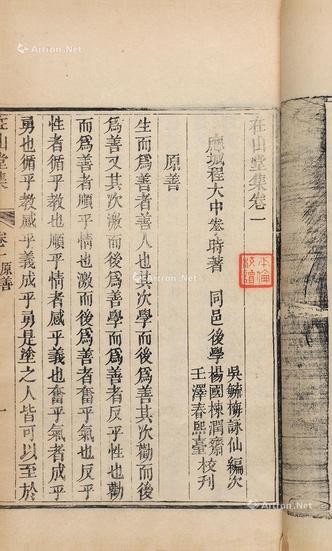 在山堂集卷一
應城程大中拳時著 同邑後學
吳毓梅詠仙編次
楊國棟潤齋
王澤春熙臺
校刊
原善
生而爲善者善人也其次學而後爲善其次勸而後
爲善又其次激而後爲善學而爲善者反乎性也勸
而爲善者順乎情也激而後爲善者奮乎氣也反乎
性者循乎教也順乎情者感乎義也奮乎氣者成乎
勇也循乎教感乎義成乎勇是塗之人皆可以至於
在山堂集 卷一 原善 一
Artron.Net
Artron.Net